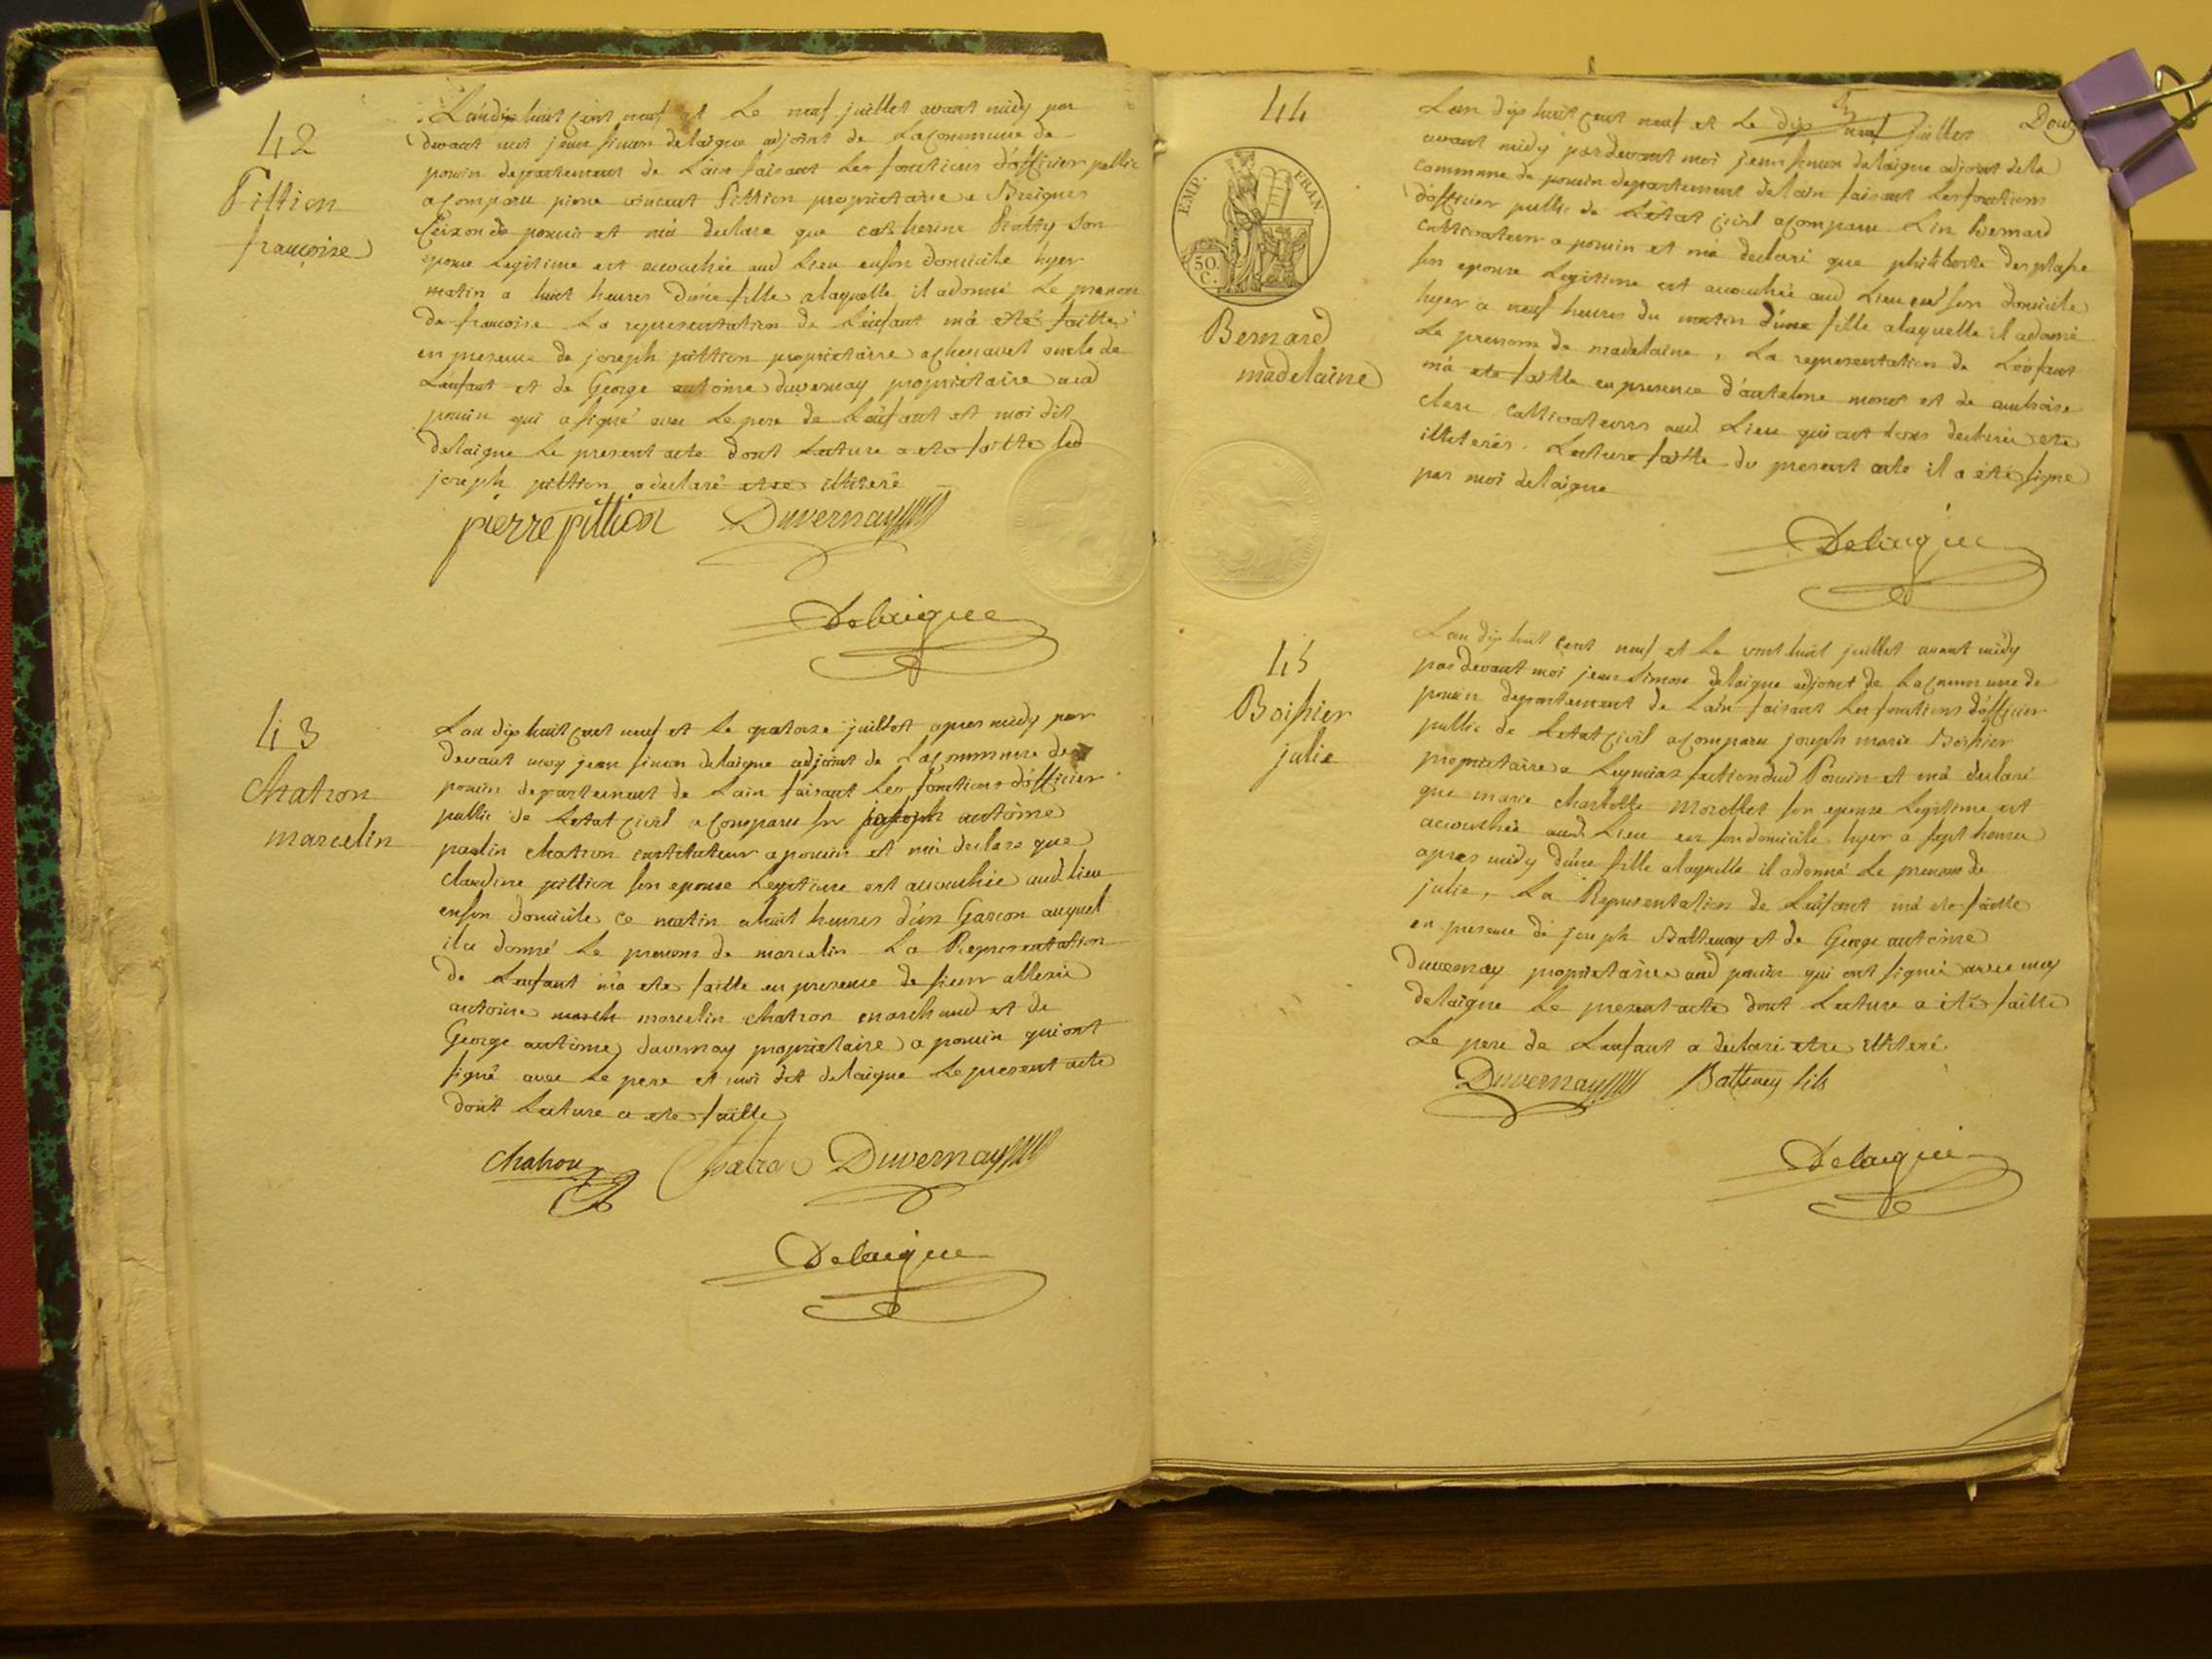 42
Pittion
françoise
L'an dix huit cent neuf et le neuf juillet avant midy par
devant moi jean simon delaigue adjoint de la Commune de
pouin departement de L'ain faisant les fonctions d'officier public
a Comparu pierre vincent Pittion proprietaire a
de pouin et m'a declare que catherine son
epouse Legitime est accouchée aud Lieu en son domicile hyer
matin a huit heures d'une fille a laquelle il a donné Le prenom
de francoise La representation de L'enfant m'a eté faitte
en presence de joseph pittion proprietaire a oncle de
L'enfant et de George antoine duvernay proprietaire aud
pouin qui a signé avec Le pere de L'enfant et moi dit
delaigue Le present acte dont Lecture a eté faitte led
joseph pittion a declaré etre illiteré
pierre pittion Duvernay
Delaigue
43
Chatron
marcelin
L'an dix huit cent neuf et Le quatorze juillet apres midy par
devant moy jean simon delaigue adjoint de La Commune de
pouin departement de L'ain faisant Les fonctions d'officier
public de L'etat Civil a Comparu sr joseph antoine
paulin chatron instituteur a pouin et m'a declare que
claudine pittion son epouse Legitime est accouchée aud. lieu
en son domicile ce matin a huit heures d'un Garcon auquel
il a donné Le prenom de marcelin La Representation
de L'enfant m'a eté faitte en presence de sieur
antoine march marcelin chatron marchand et de
George antoine duvernay proprietaire a pouin qui ont
signé avec Le pere et moi dit delaigue Le present acte
dont Lecture a ete faitte
Chatron Chatron Duvernay
Delaigue
44
EMP. FRAN
50.
C.
Bernard
madelaine
Douz
L'an dix huit cent neuf et Le dix neuf juillet
avant midy pardevant moi jean simon delaigue adjoint de la
commune de pouin departement de lain faisant Les fonctions
d'officier public de L'etat Civil a Comparu Bernard
cultivateur a pouin et m'a declaré que philiberte desplase
son epouse Legitime est accouchée aud Lieu en son domicile
hyer a neuf heures du matin d'une fille a laquelle il a donné
Le prenom de madelaine, La representation de L'enfant
m'a ete faitte en presence d'antelme monet et de ambroise
clerc cultivateurs aud Lieu qui ont tous declaré etre
illiterés. Lecture faitte du present acte il a eté signé
par moi delaigue
Delaigue
45
Boissier
julie
L'an dix huit cent neuf et Le vint huit juillet avant midy
pardevant moi jean simon delaigue adjoint de La Commune de
pouin departement de L'ain faisant Les fonctions d'officier
public de L'etat Civil a Comparu joseph marie Boissier
proprietaire a Leymiaz section dud Pouin et m'a declaré
que marie charlotte morellet son epouse Legitime est
accouchée aud. Lieu en son domicile hyer a sept heures
apres midy d'une fille a laquelle il a donné Le prenom de
julie, La Representation de L'enfant m'a ete faitte
en presence de joseph Battenay et de George antoine
duvernay proprietaires aud pouin qui ont signé avec moy
delaigue Le present acte dont Lecture a été faitte
Le pere de L'enfant a declaré etre illiteré.
Duvernay Batteney fils
Delaigue